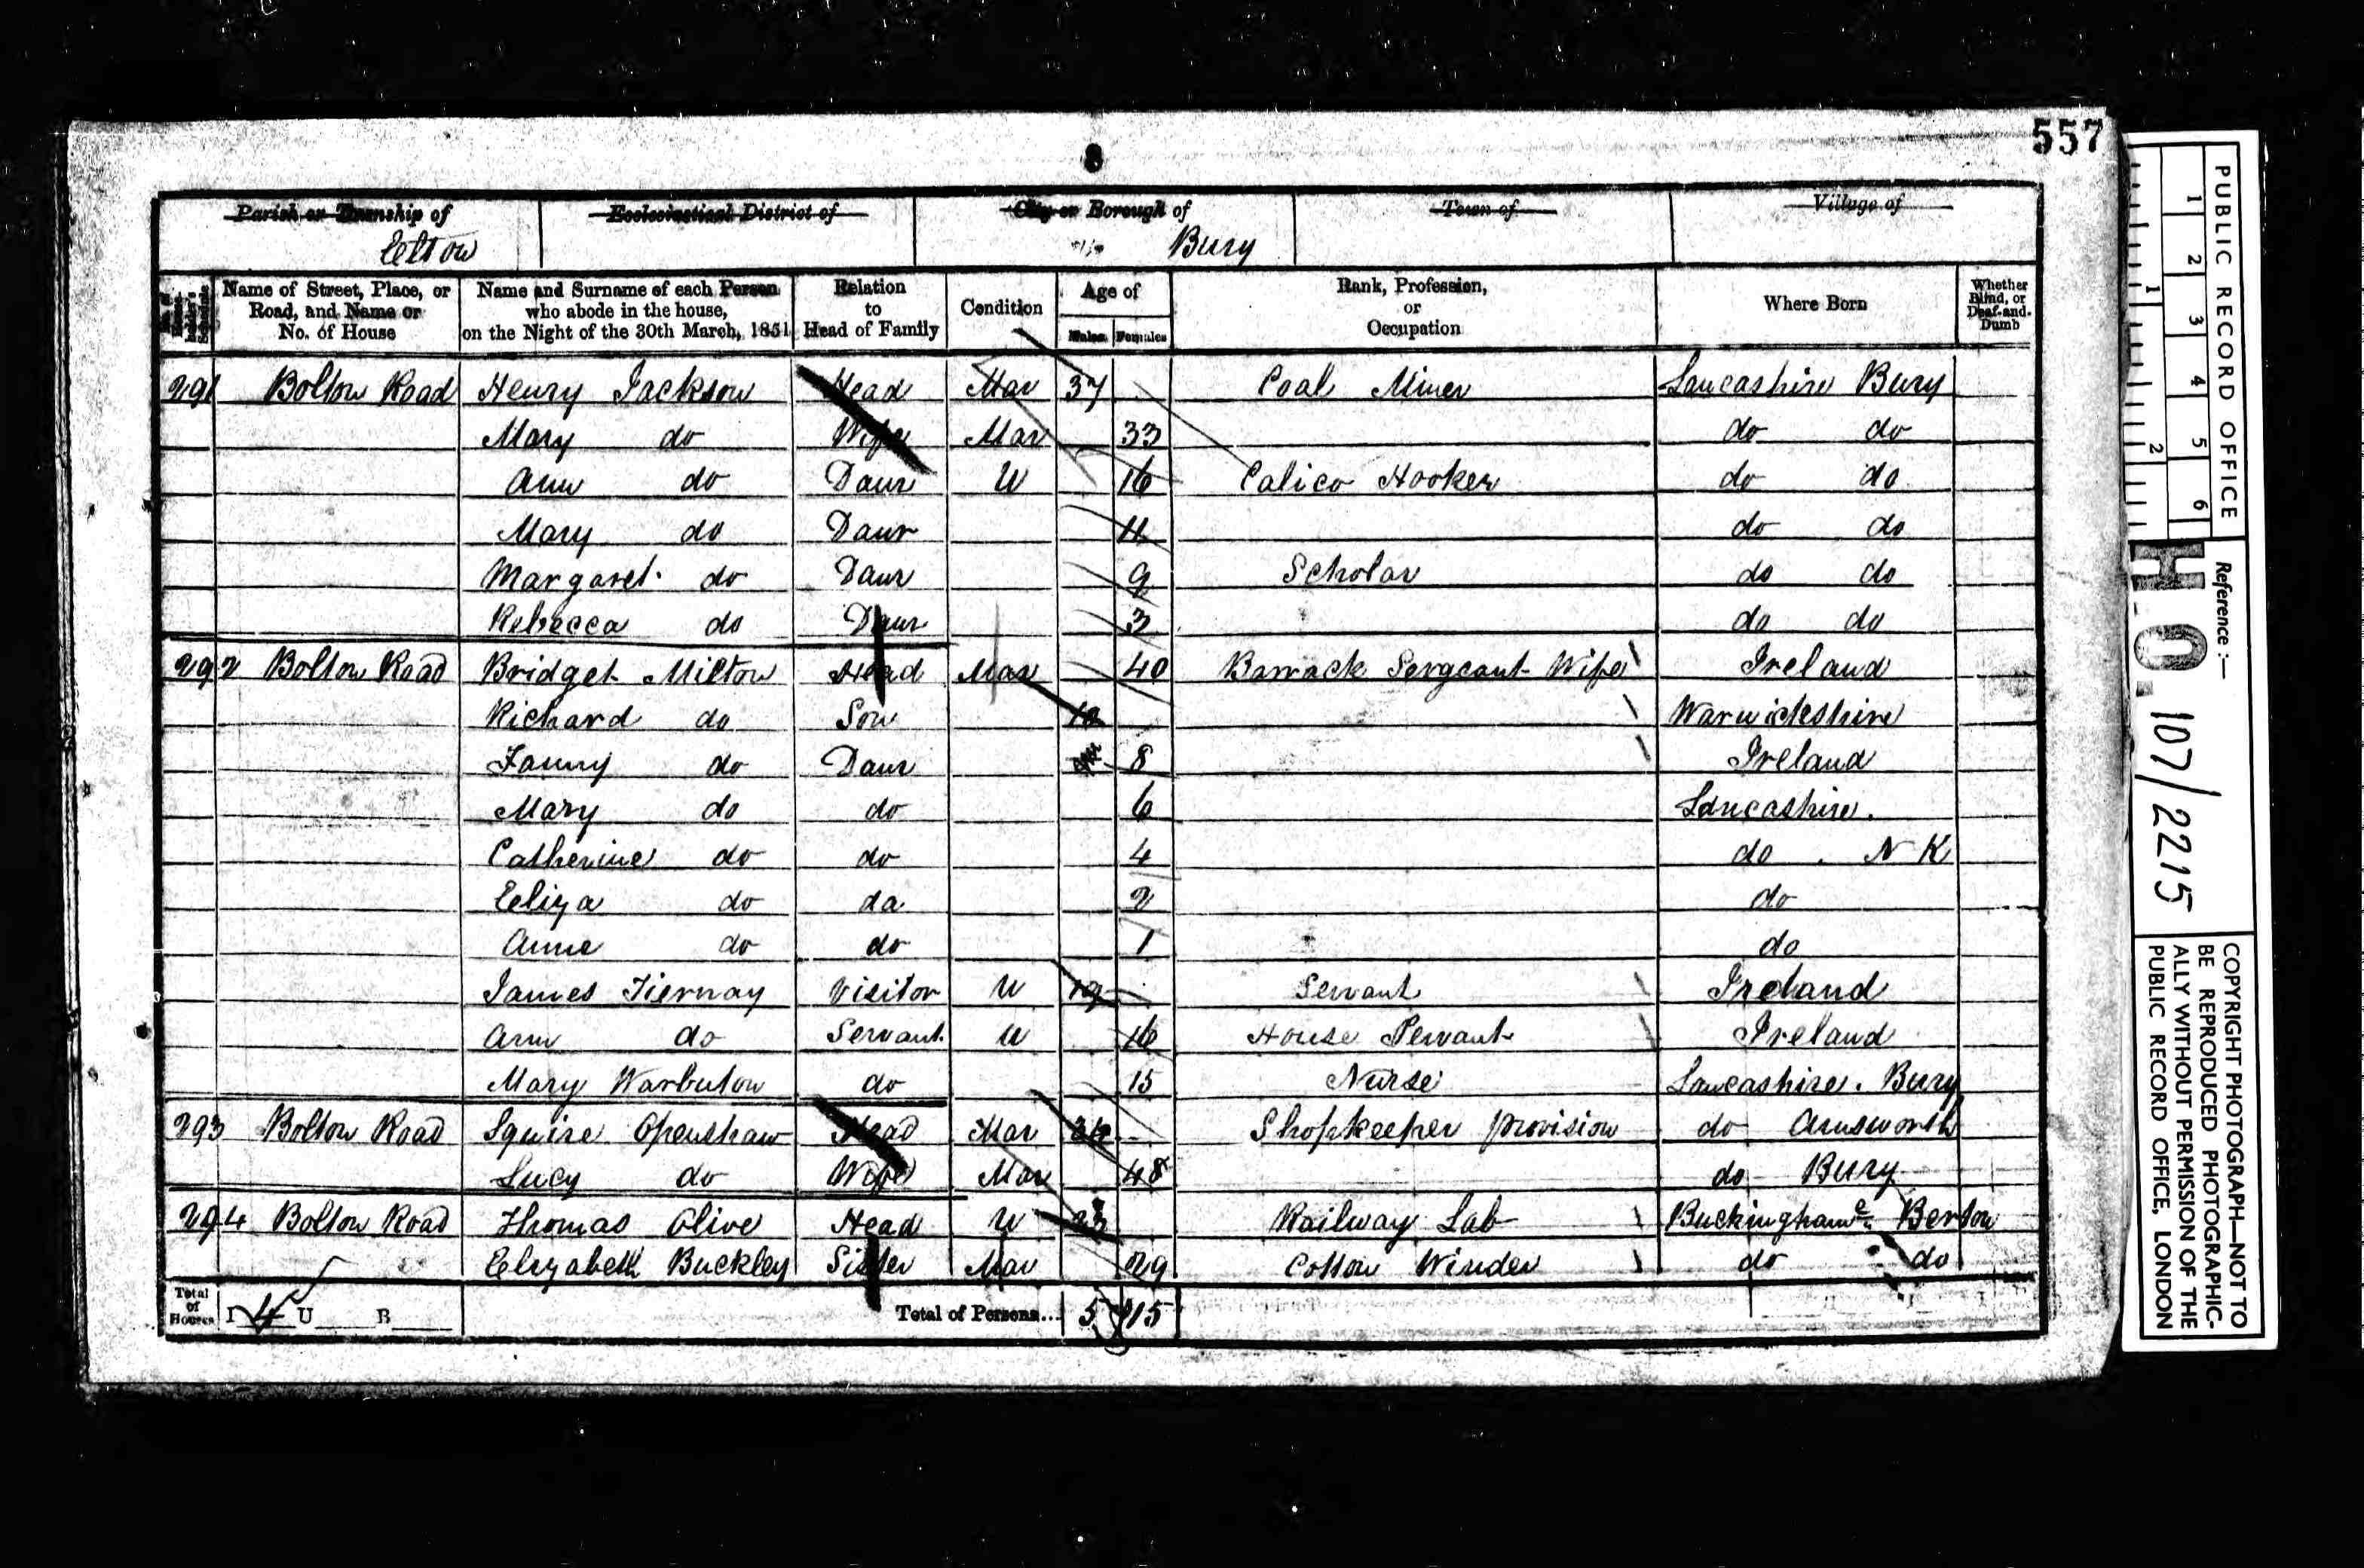 557
8
Parish or Township of Ecclesiastical District of City or Borough of Town of Village of
Elton Bury
No. of House-holder's Schedule Name of Street, Place, or Road, and Name or No. of House Name and Surname of each Person who abode in the house, on the Night of the 30th March, 1851 Relation to Head of Family Condition Age of Males Females Rank, Profession, or Occupation Where Born Whether Blind, or Deaf-and-Dumb
291 Bolton Road Henry Jackson Head Mar 37 Coal Miner Lancashire Bury
Mary do Wife Mar 33 do do
Ann do Daur U 16 Calico Hooker do do
Mary do Daur 11 do do
Margaret do Daur 9 Scholar do do
Rebecca do Daur 3 do do
292 Bolton Road Bridget Milton Head Mar 40 Barrack Sergeant Wife Ireland
Richard do Son 10 Warwickshire
Fanny do Daur 8 Ireland
Mary do do 6 Lancashire.
Catherine do do 4 do . N K
Eliza do da 2 do
Anne do do 1 do
James Tiernay Visitor U 19 Servant Ireland
Ann do Servant U 16 House Servant Ireland
Mary Warbuton do 15 Nurse Lancashire. Bury
293 Bolton Road Squire Openshaw Head Mar Shopkeeper provision do Ainsworth
Lucy do Wife Mar 48 do Bury
294 Bolton Road Thomas Olive Head U 23 Railway Lab Buckingham Berton
Elizabeth Buckley Sister Mar 29 Cotton Winder do do
Total of Houses I 4 U B Total of Persons... 5 15
PUBLIC RECORD OFFICE
1 2 3 4 5 6
1 2
Reference:—
H.O. 107/2215
COPYRIGHT PHOTOGRAPH—NOT TO
BE REPRODUCED PHOTOGRAPHIC-
ALLY WITHOUT PERMISSION OF THE
PUBLIC RECORD OFFICE, LONDON